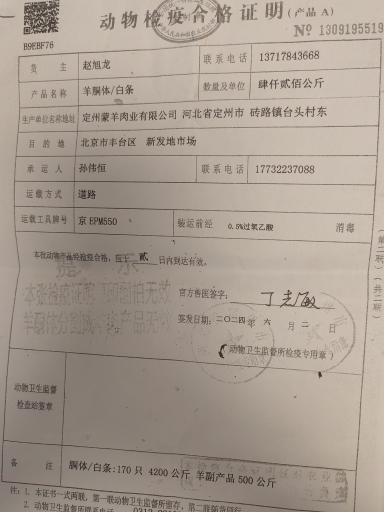 动物检疫合格证明（产品 A）
B9EBF76
№ 1309195519
货主 赵旭龙 联系电话 13717843668
产品名称 羊胴体/白条 数量及单位 肆仟贰佰公斤
生产单位名称地址 定州蒙羊肉业有限公司 河北省定州市 砖路镇台头村东
目的地 北京市丰台区 新发地市场
承运人 孙伟恒 联系电话 17732237088
运载方式 道路
运载工具牌号 京EPM550 装运前经 0.5%过氧乙酸 消毒
本批动物产品经检疫合格，应于 贰 日内到达有效。
提示
官方兽医签字：
签发日期：二〇二四年 六 月 二 日
（动物卫生监督所检疫专用章）
动物卫生监督
检查站签章
备注 胴体/白条:170只 4200公斤 羊副产品500公斤
注：1. 本证书一式两联，第一联动物卫生监督所留存，第二联随货同行
2. 动物卫生监督所联系电话
（第二联）（共二联）